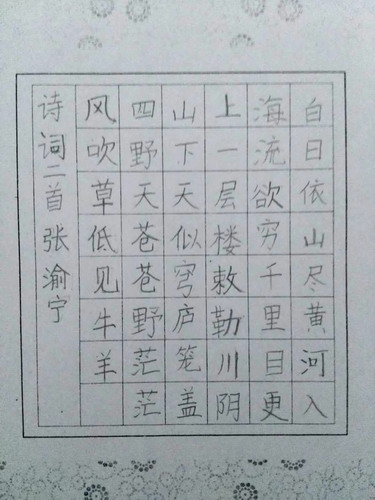 白日依山尽黄河入
海流欲穷千里目更
上一层楼敕勒川阴
山下天似穹庐笼盖
四野天苍苍野茫茫
风吹草低见牛羊
诗词二首张渝宁